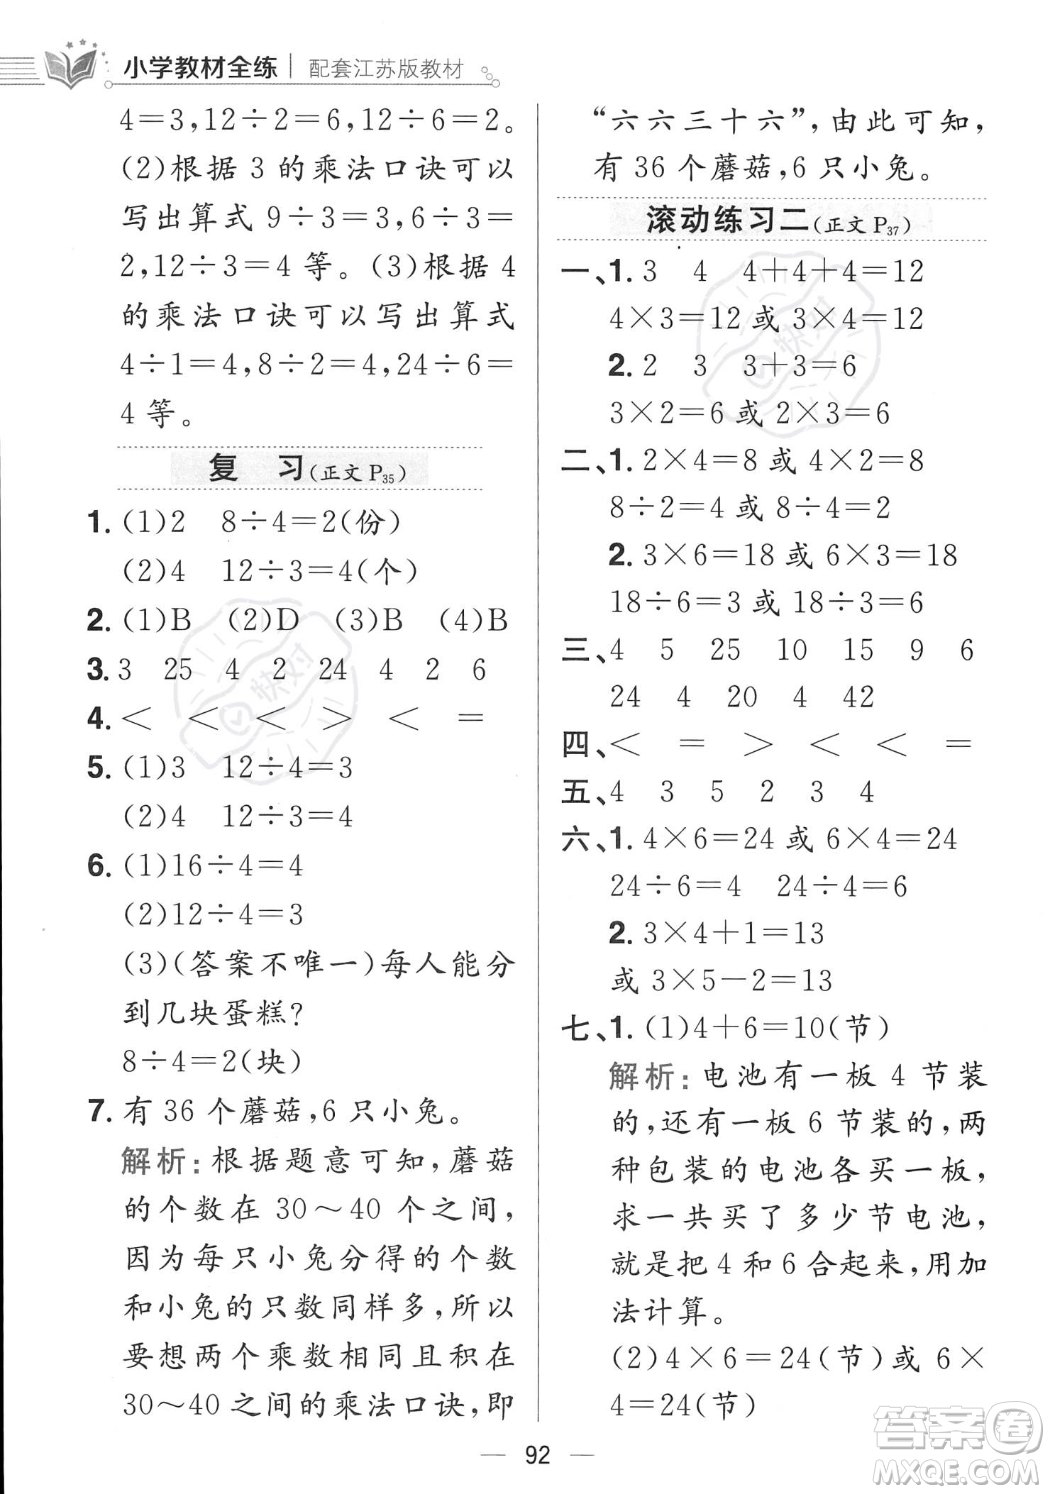 小学教材全练 配套江苏版教材
4=3,12÷2=6,12÷6=2。
(2)根据 3 的乘法口诀可以
写出算式 9÷3=3,6÷3=
2,12÷3=4 等。(3)根据 4
的乘法口诀可以写出算式
4÷1=4,8÷2=4,24÷6=
4 等。
复 习(正文 P35)
1. (1)2 8÷4=2(份)
(2)4 12÷3=4(个)
2. (1)B (2)D (3)B (4)B
3. 3 25 4 2 24 4 2 6
4. < < < > < =
5. (1)3 12÷4=3
(2)4 12÷3=4
6. (1)16÷4=4
(2)12÷4=3
(3)(答案不唯一)每人能分
到几块蛋糕?
8÷4=2(块)
7. 有 36 个蘑菇,6 只小兔。
解析:根据题意可知,蘑菇
的个数在 30～40 个之间,
因为每只小兔分得的个数
和小兔的只数同样多,所以
要想两个乘数相同且积在
30～40 之间的乘法口诀,即
“六六三十六”,由此可知,
有 36 个蘑菇,6 只小兔。
滚动练习二(正文 P37)
一、1. 3 4 4+4+4=12
4×3=12 或 3×4=12
2. 2 3 3+3=6
3×2=6 或 2×3=6
二、1. 2×4=8 或 4×2=8
8÷2=4 或 8÷4=2
2. 3×6=18 或 6×3=18
18÷6=3 或 18÷3=6
三、4 5 25 10 15 9 6
24 4 20 4 42
四、< = > < < =
五、4 3 5 2 3 4
六、1. 4×6=24 或 6×4=24
24÷6=4 24÷4=6
2. 3×4+1=13
或 3×5-2=13
七、1. (1)4+6=10(节)
解析:电池有一板 4 节装
的,还有一板 6 节装的,两
种包装的电池各买一板,
求一共买了多少节电池,
就是要把 4 和 6 合起来,用加
法计算。
(2)4×6=24(节)或 6×
4=24(节)
92
快对
快对
答案圈
MXQE.COM